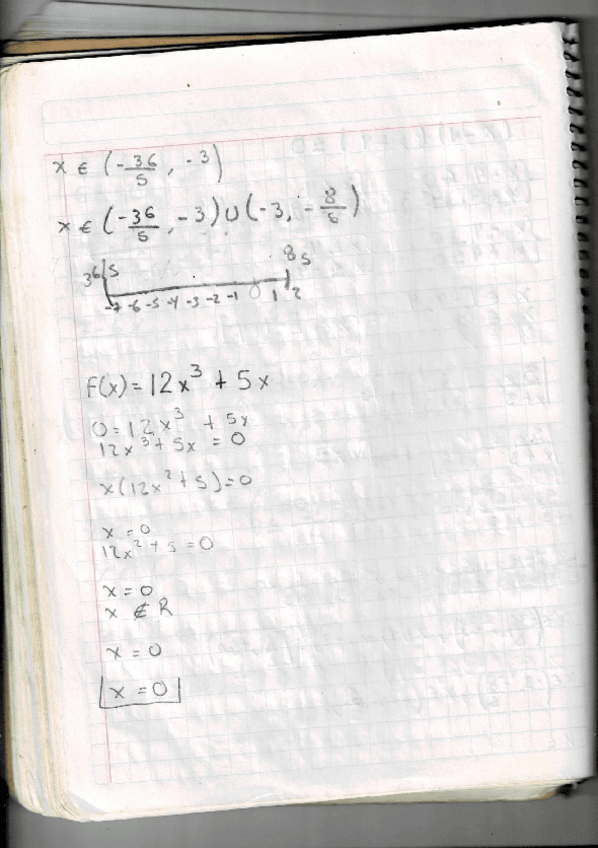 x ∈ (-36/5, -3)
x ∈ (-36/5, -3) ∪ (-3, -8/5)
36/5 8 5
-7 -6 -5 -4 -3 -2 -1 0 1 2
F(x) = 12x³ + 5x
0 = 12x³ + 5x
12x³ + 5x = 0
x(12x² + 5) = 0
x = 0
12x² + 5 = 0
x = 0
x ∉ R
x = 0
x = 0